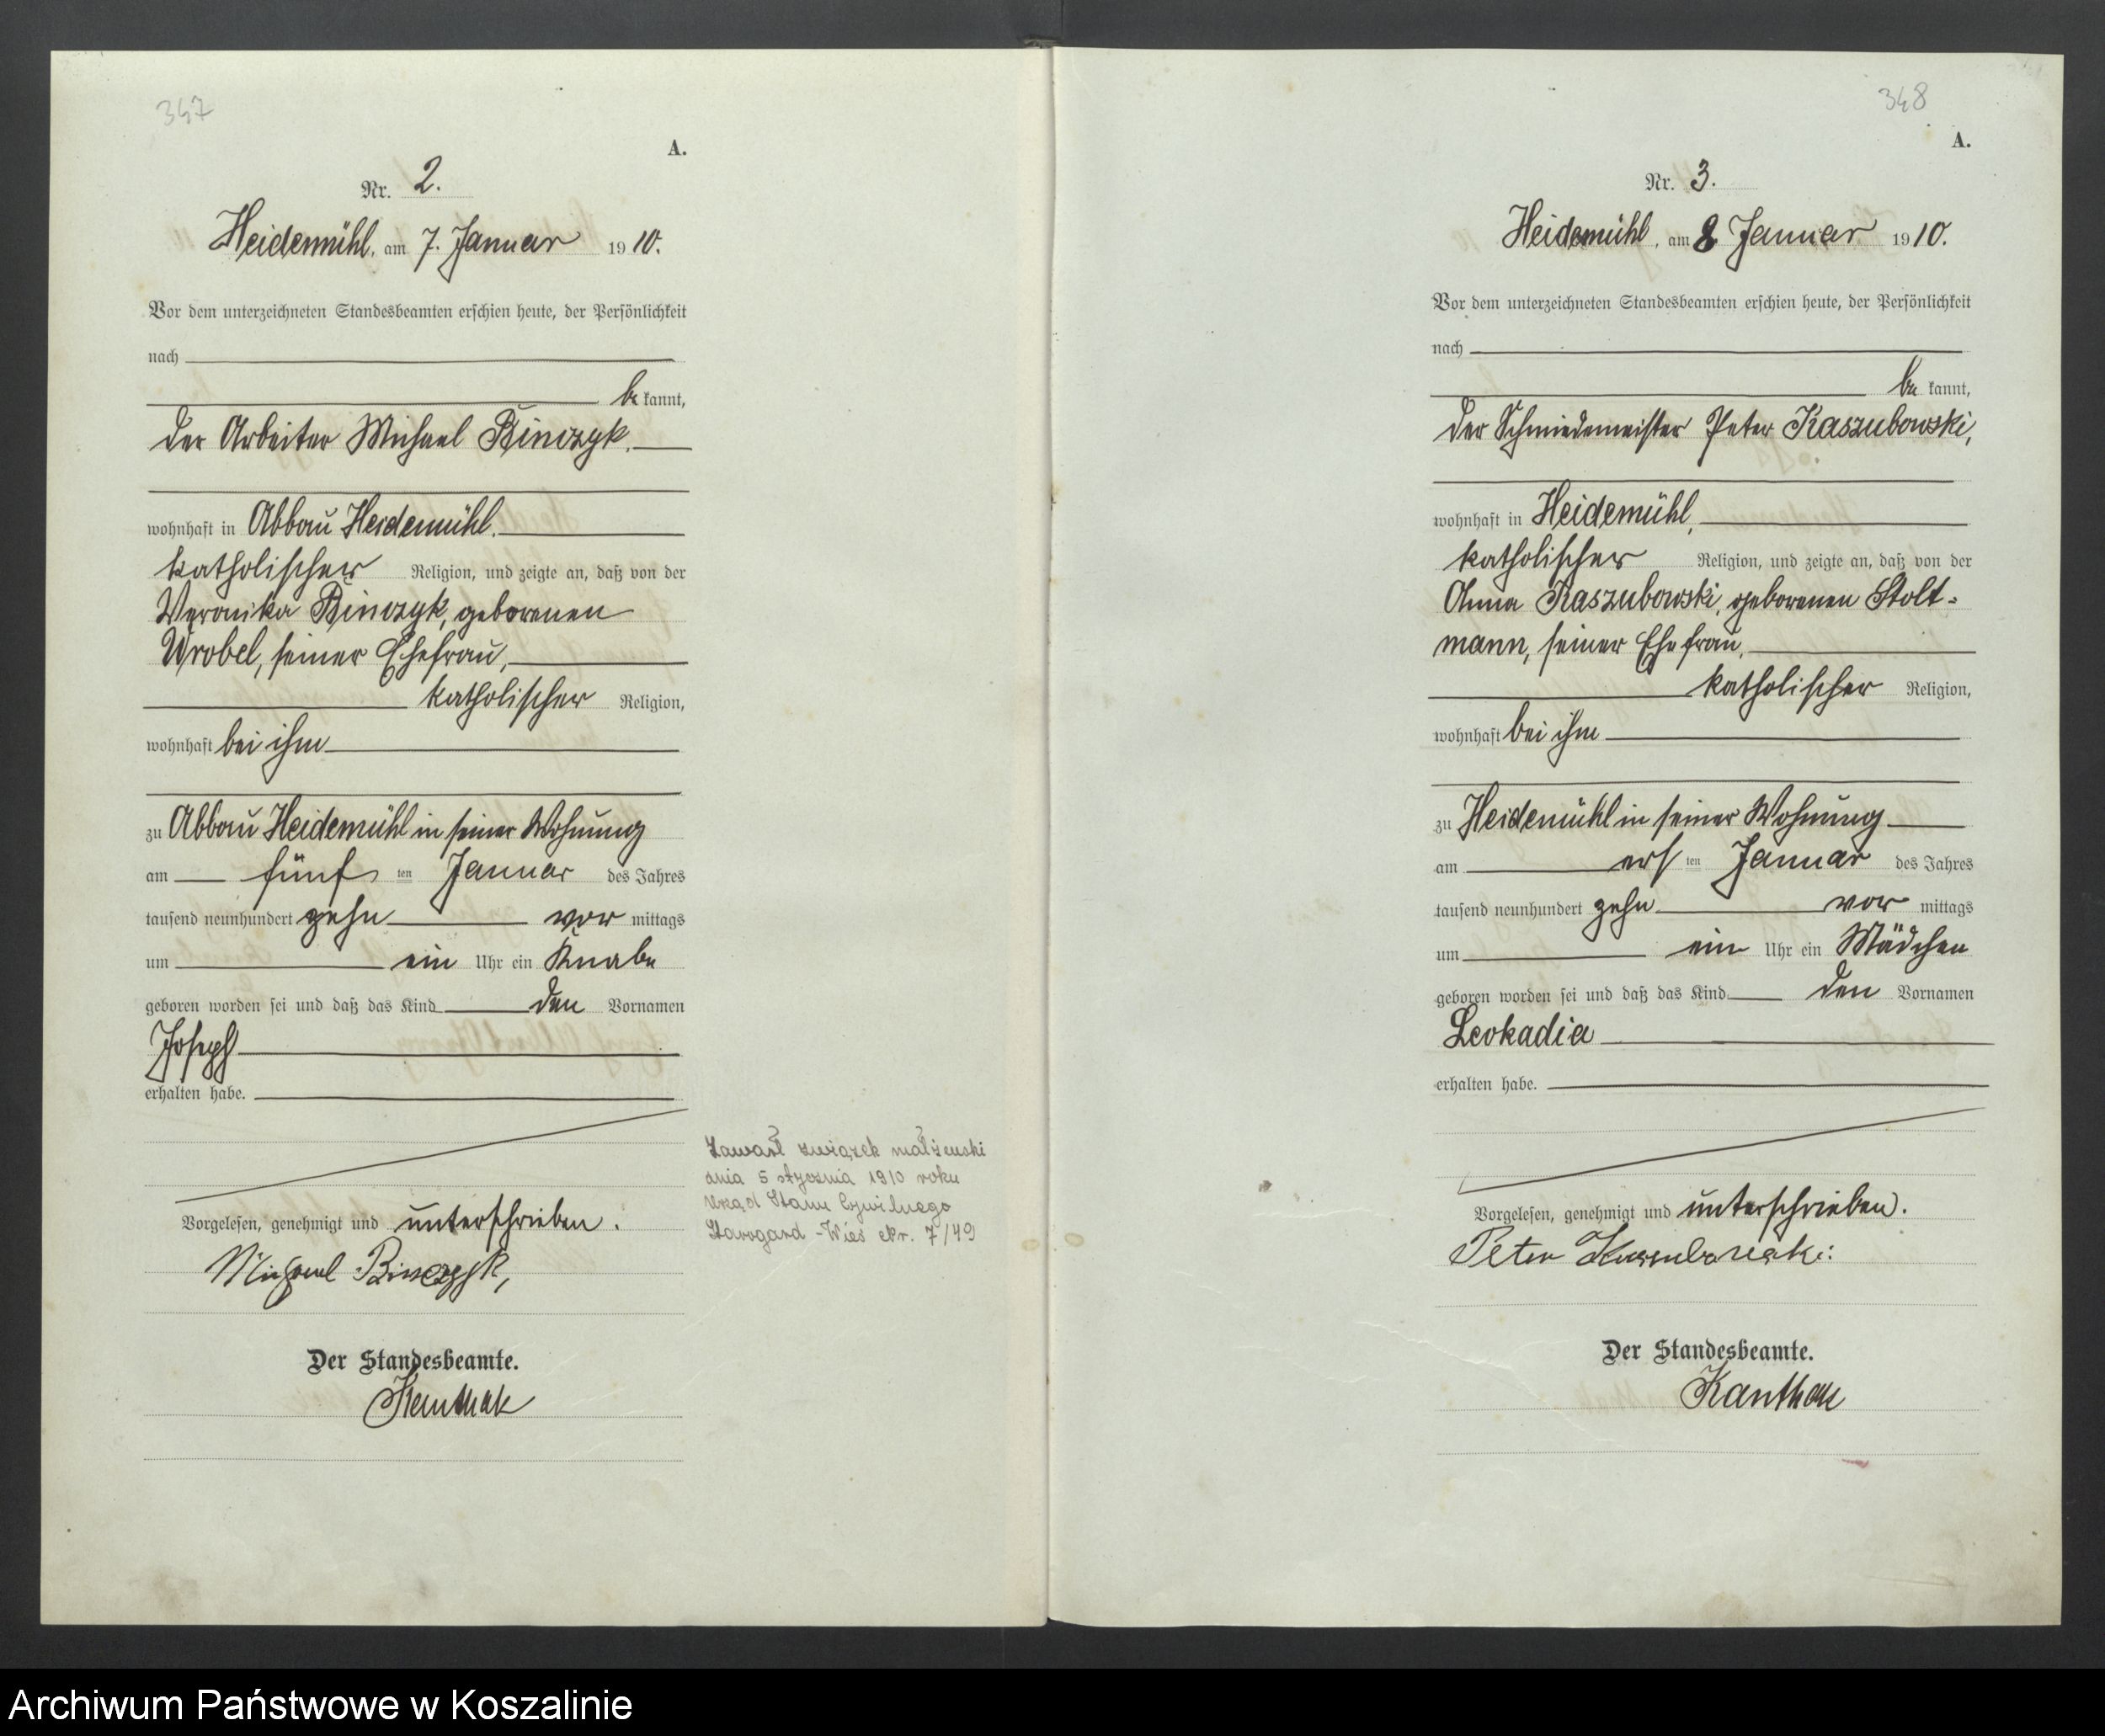 347
A.
Nr. 2.
Heidemühl, am 7. Januar 1910.
Vor dem unterzeichneten Standesbeamten erschien heute, der Persönlichkeit
nach
be kannt,
der Arbeiter Michael Binczyk,
wohnhaft in Abbau Heidemühl.
katholischer Religion, und zeigte an, daß von der
Veronika Binczyk, geborenen
Wrobel, seiner Ehefrau,
katholischer Religion,
wohnhaft bei ihm
zu Abbau Heidemühl in seiner Wohnung
am fünf ten Januar des Jahres
tausend neunhundert zehn vor mittags
um ein Uhr ein Knabe
geboren worden sei und daß das Kind den Vornamen
Joseph
erhalten habe.
Vorgelesen, genehmigt und unterschrieben.
Michael Binczyk,
Der Standesbeamte.
Kanthak
Zawarł związek małżeński
dnia 5 stycznia 1910 roku
Urząd Stanu Cywilnego
Starogard-Wieś Nr. 7/49
348
A.
Nr. 3.
Heidemühl, am 8 Januar 1910.
Vor dem unterzeichneten Standesbeamten erschien heute, der Persönlichkeit
nach
be kannt,
der Schmiedemeister Peter Kaszubowski,
wohnhaft in Heidemühl,
katholischer Religion, und zeigte an, daß von der
Anna Kaszubowski, geborenen Stolt=
mann, seiner Ehefrau,
katholischer Religion,
wohnhaft bei ihm
zu Heidemühl in seiner Wohnung
am ers ten Januar des Jahres
tausend neunhundert zehn vor mittags
um ein Uhr ein Mädchen
geboren worden sei und daß das Kind den Vornamen
Leokadia
erhalten habe.
Vorgelesen, genehmigt und unterschrieben.
Peter Kaszubowski
Der Standesbeamte.
Kanthak
Archiwum Państwowe w Koszalinie